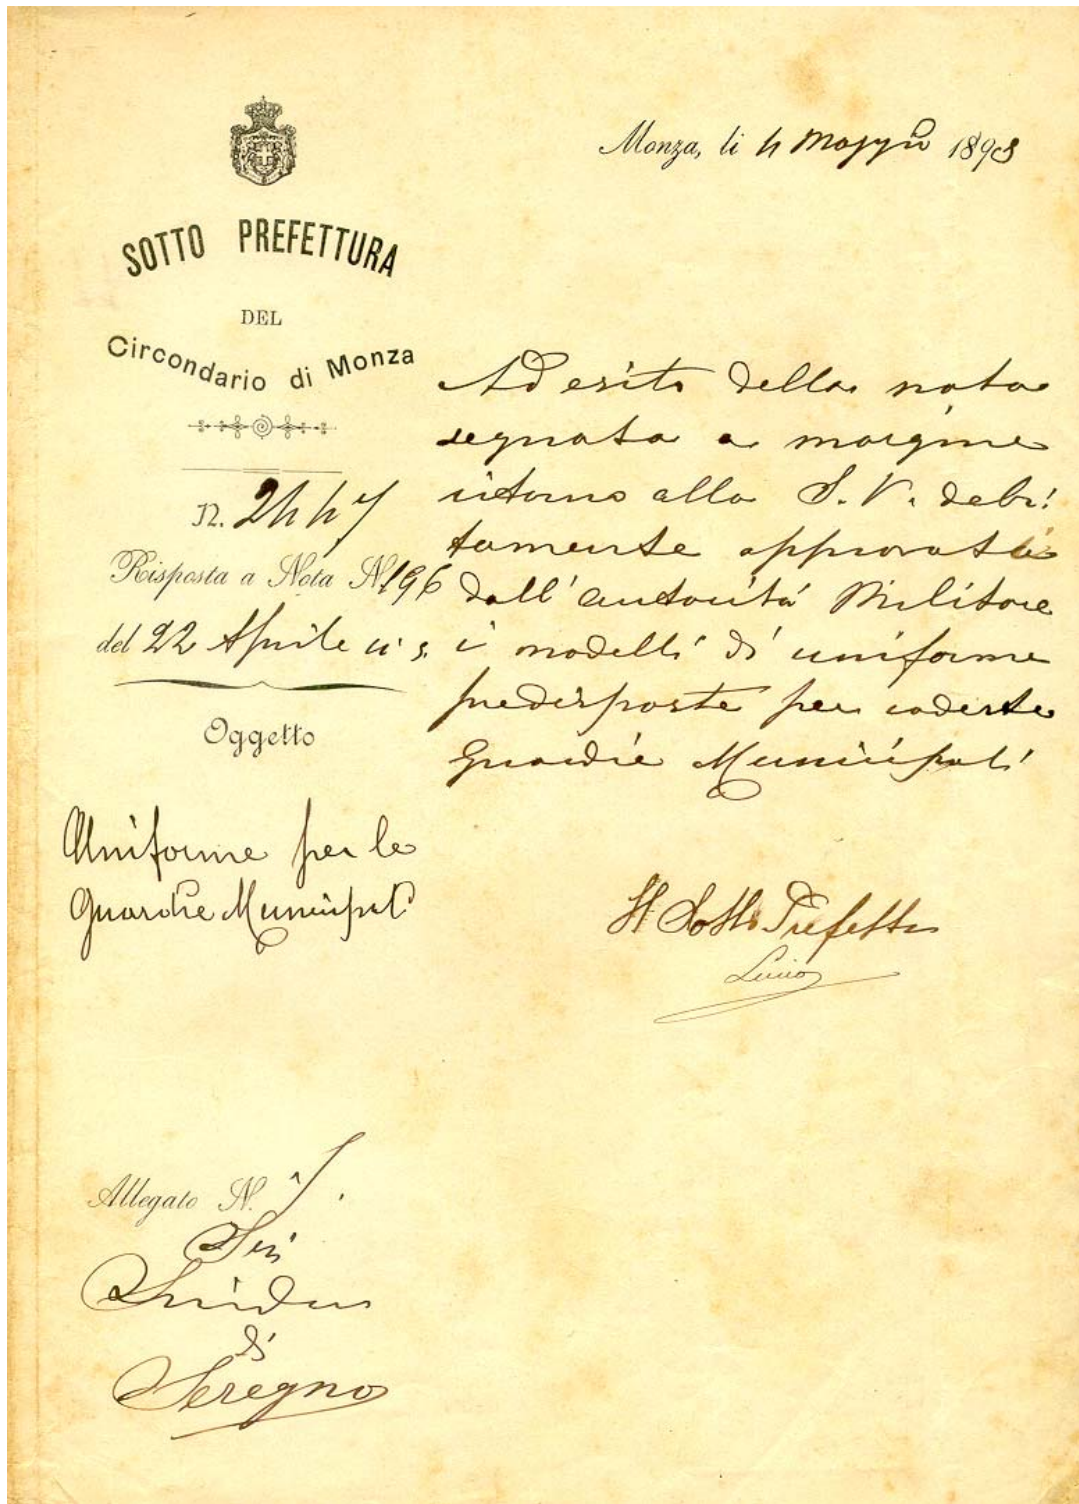 Monza, li 4 Maggio 1893
SOTTO PREFETTURA
DEL
Circondario di Monza
N. 2447
Risposta a Nota N. 196
del 22 Aprile u. s.
Oggetto
Uniforme per le
Guardie Municipali
Ad esito della nota
segnata a margine
ritorno alla S. V. debi
tamente approvati
dall'autorità Militare
i modelli di uniforme
predisposte per codeste
Guardie Municipali
Il Sotto Prefetto
Allegato N.
Sig.
Sindaco
di
Seregno